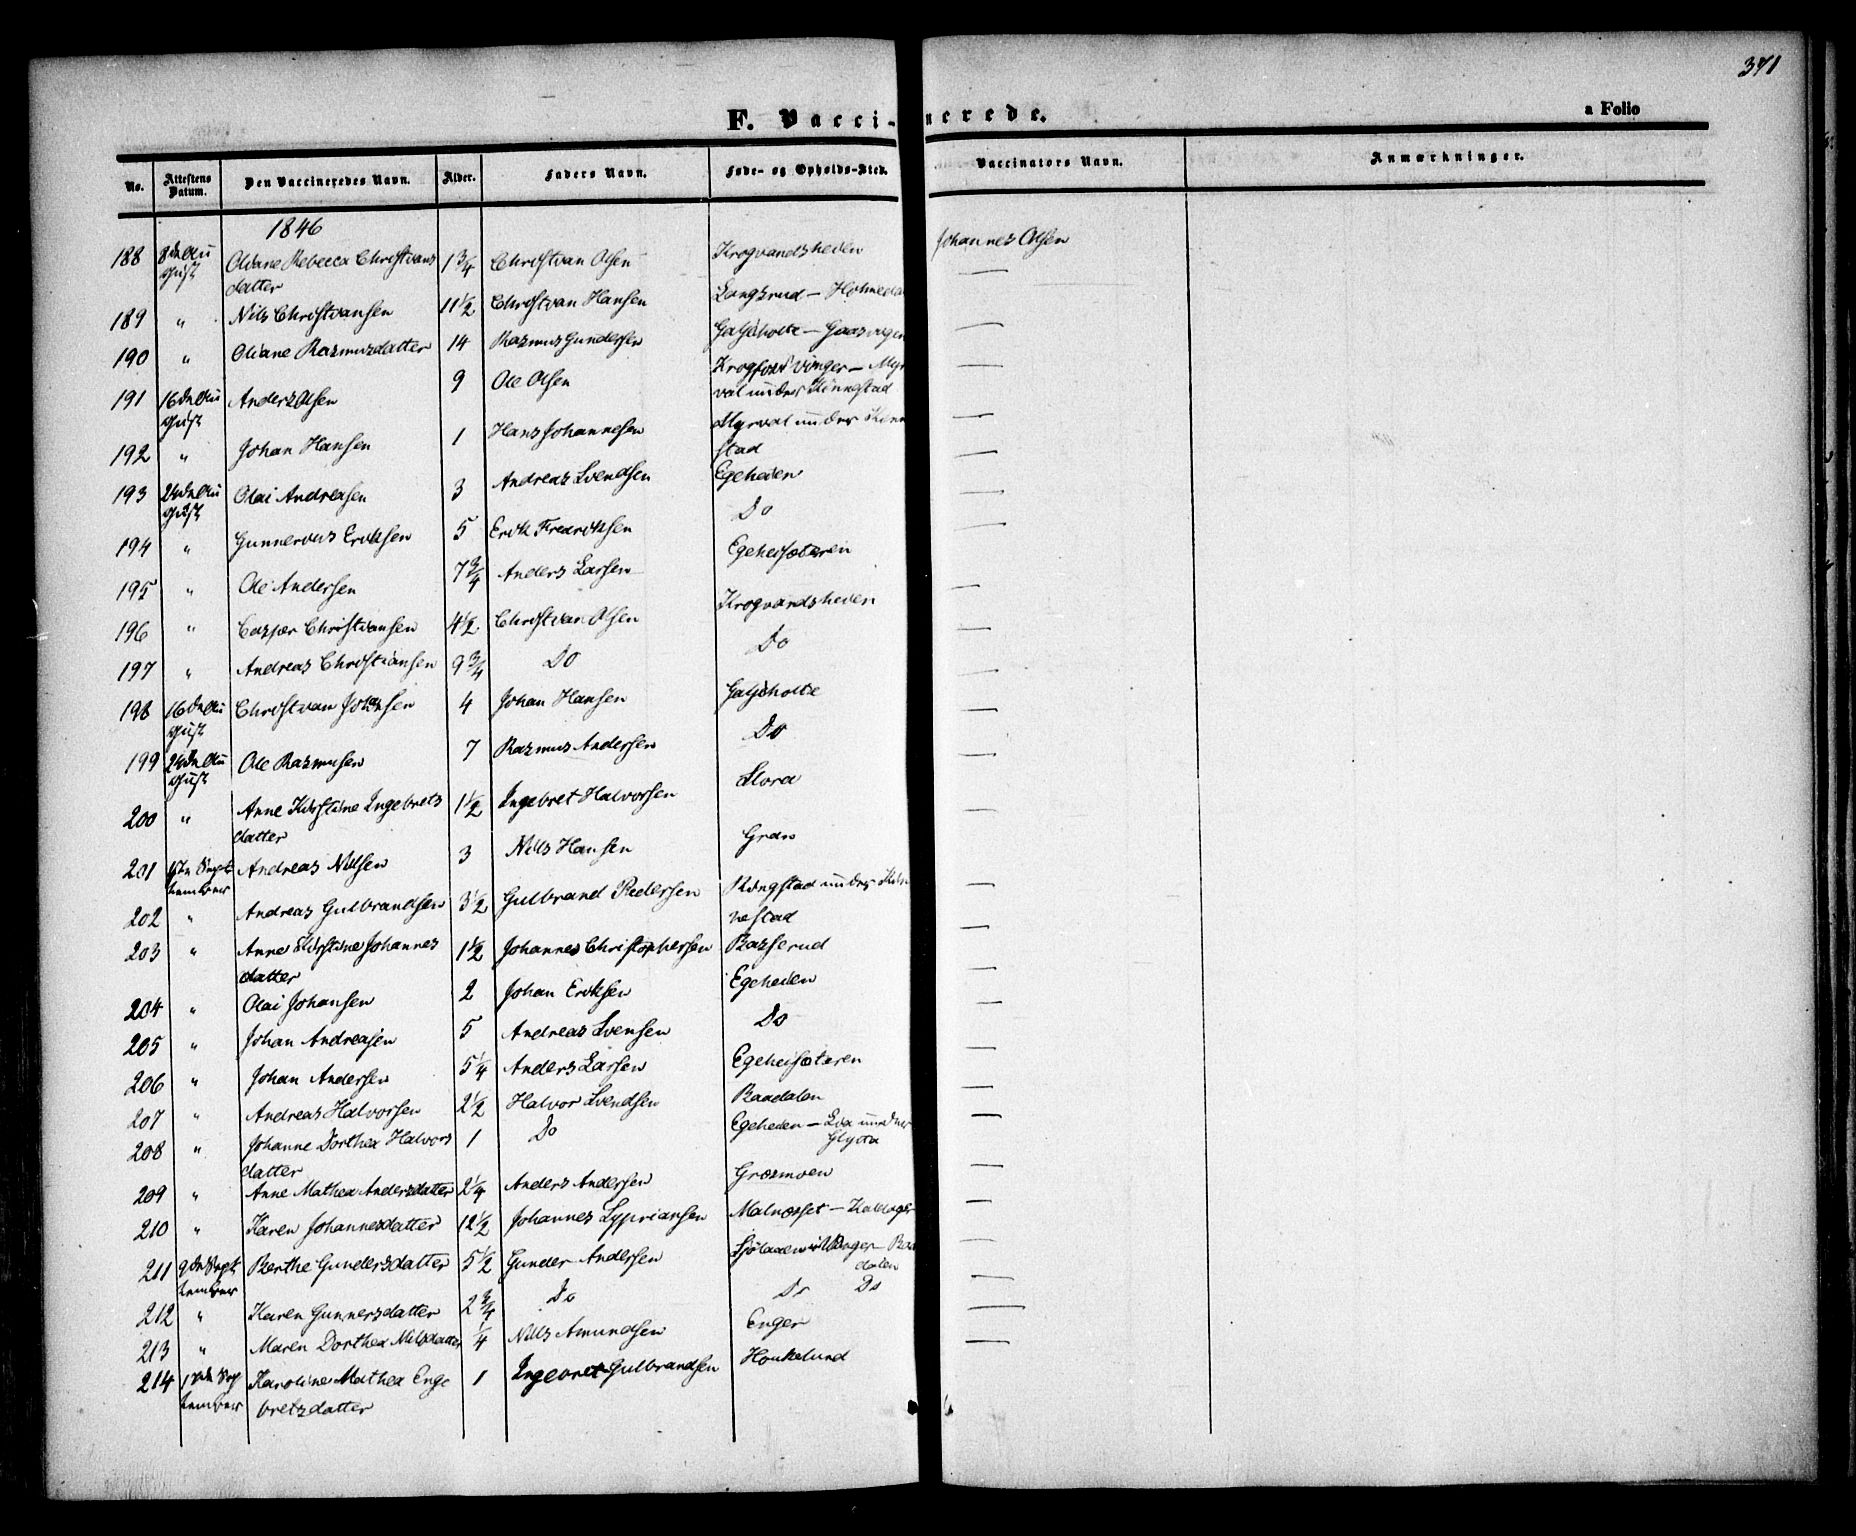 371
F. Vaccinerede.
a Folio
No. Attestens Datum. Den Vaccineredes Navn. Alder. Faders Navn. Føde- og Opholds-Sted. Vaccinators Navn. Anmærkninger.
1846
188 8de Au Oliane Rebecca Christians 1 3/4 Christian Olsen Krogvandsheden Johannes Olsen
gust datter
189 " Nils Christiansen 11 1/2 Christian Hansen Langsrud — Holmeda —
190 " Oliane Rasmusdatter 14 Rasmus Gundersen Galjeholte — Gaasvigen —
191 16de Au Anders Olsen 9 Ole Olsen Krogfoss Vinger — Myr
gust val under Kinnestad —
192 " Johan Hansen 1 Hans Johannesen Myrval under Kinne
stad —
193 24de Au Olai Andreasen 3 Andreas Svendsen Egeheden —
gust
194 " Gunnerius Eriksen 5 Erik Fredriksen Do —
195 " Ole Andersen 7 3/4 Anders Larsen Egeheisæteren —
196 " Casper Christiansen 4 1/2 Christian Olsen Krogvandsheden —
197 " Andreas Christiansen 9 3/4 Do Do —
198 16de Au Christian Johansen 4 Johan Hansen Galjeholte —
gust
199 24de Au Ole Rasmusen 7 Rasmus Andersen Do —
gust
200 " Anne Kirstine Ingebrets 1 1/2 Ingebret Halvorsen Slora —
datter
201 Sept Andreas Nilsen 3 Nills Hansen Gran —
tember
202 " Andreas Gulbrandsen 3 1/2 Gulbrand Pedersen Ringstad under Kin
nestad —
203 " Anne Kirstine Johannes 1 1/2 Johannes Christophersen Basserud —
datter
204 " Olai Johansen 2 Johan Eriksen Egeheden —
205 " Johan Andreasen 5 Andreas Svensen Do —
206 " Johan Andersen 5 1/4 Anders Larsen Egeheisæteren —
207 " Andreas Halvorsen 2 1/2 Halvor Svendsen Baadalen —
208 " Johanne Dorthea Halvors 1 Do Egeheden — under —
datter
209 " Anne Mathea Andersdatter 2 1/4 Anders Andersen Græsmoen —
210 " Karen Johannesdatter 12 1/2 Johannes Sypriansen Malnæsset — —
211 9de Sept Berthe Gundersdatter 5 1/2 Gunder Andersen i Vinger — Baa
tember dalen —
212 " Karen Gunnersdatter 2 3/4 Do Do Do —
213 " Maren Dorthea Nilsdatter 1/4 Nills Amundsen Enger —
214 Sep Karoline Mathea Enge 1 Ingebret Gulbrandsen Houkelund —
tember bretsdatter